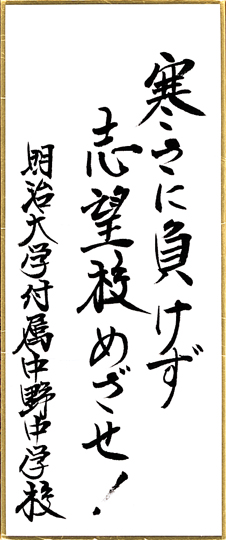 寒さに負けず
志望校めざせ！
明治大学付属中野中学校